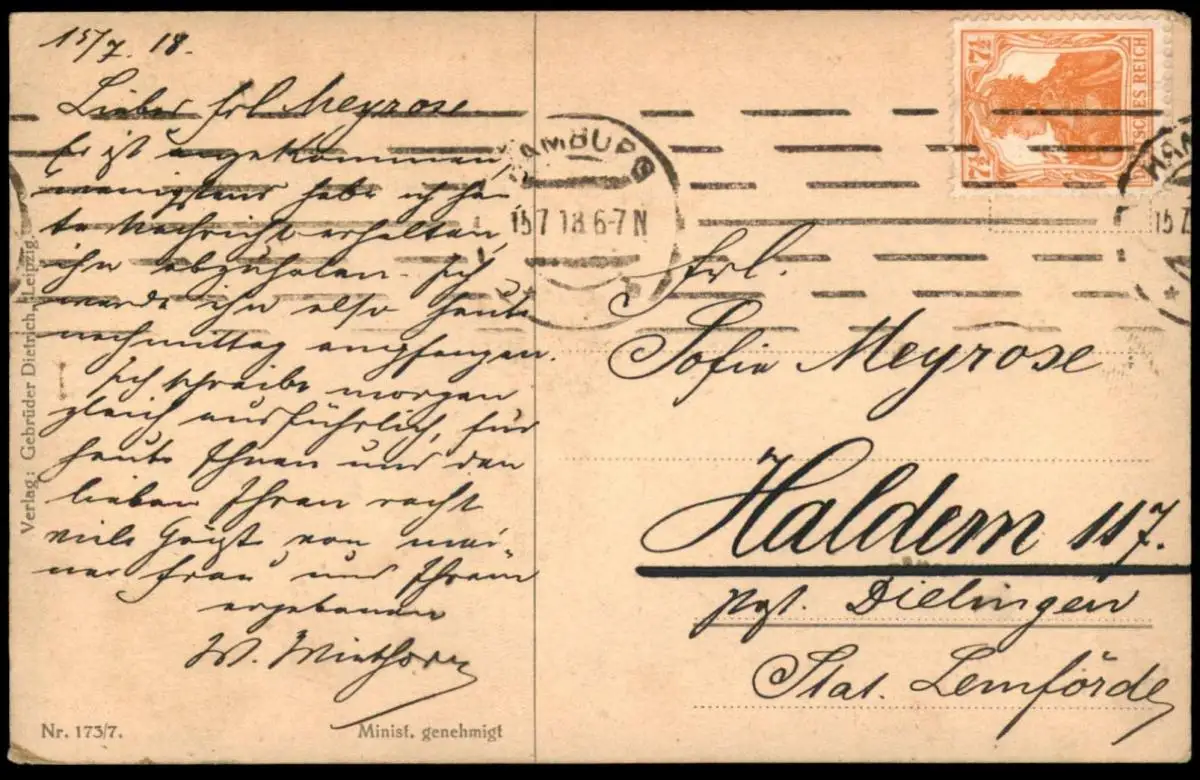 15/7. 18.
Liebes Frl Meyrose
Er ist angekommen,
wenigstens habe ich heu
te Nachricht erhalten,
ihn abzuholen. Ich
werde ihn also heute
nachmittag empfangen.
Ich schreibe morgen
gleich ausführlich, für
heute Ihnen und den
lieben Ihren recht
viele Grüße von mei-
ner Frau und Ihrem
ergebenen
W.
Verlag: Gebrüder Dietrich, Leipzig.
Nr. 173/7.
Minist. genehmigt
HAMBURG
15.7.18.6-7N
7½ 7½
DEUTSCHES REICH
HAM
15.7
Frl.
Sofie Meyrose
Haldem 117.
Pgt. Dielingen
Stat. Lemförde